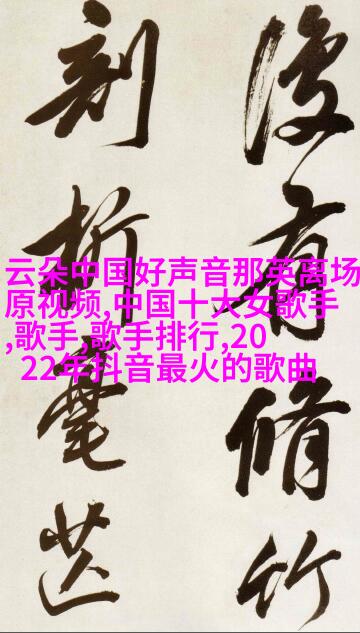 有脩竹
刻
云朵中国好声音那英离场
原视频,中国十大女歌手
,歌手,歌手排行,20
22年抖音最火的歌曲